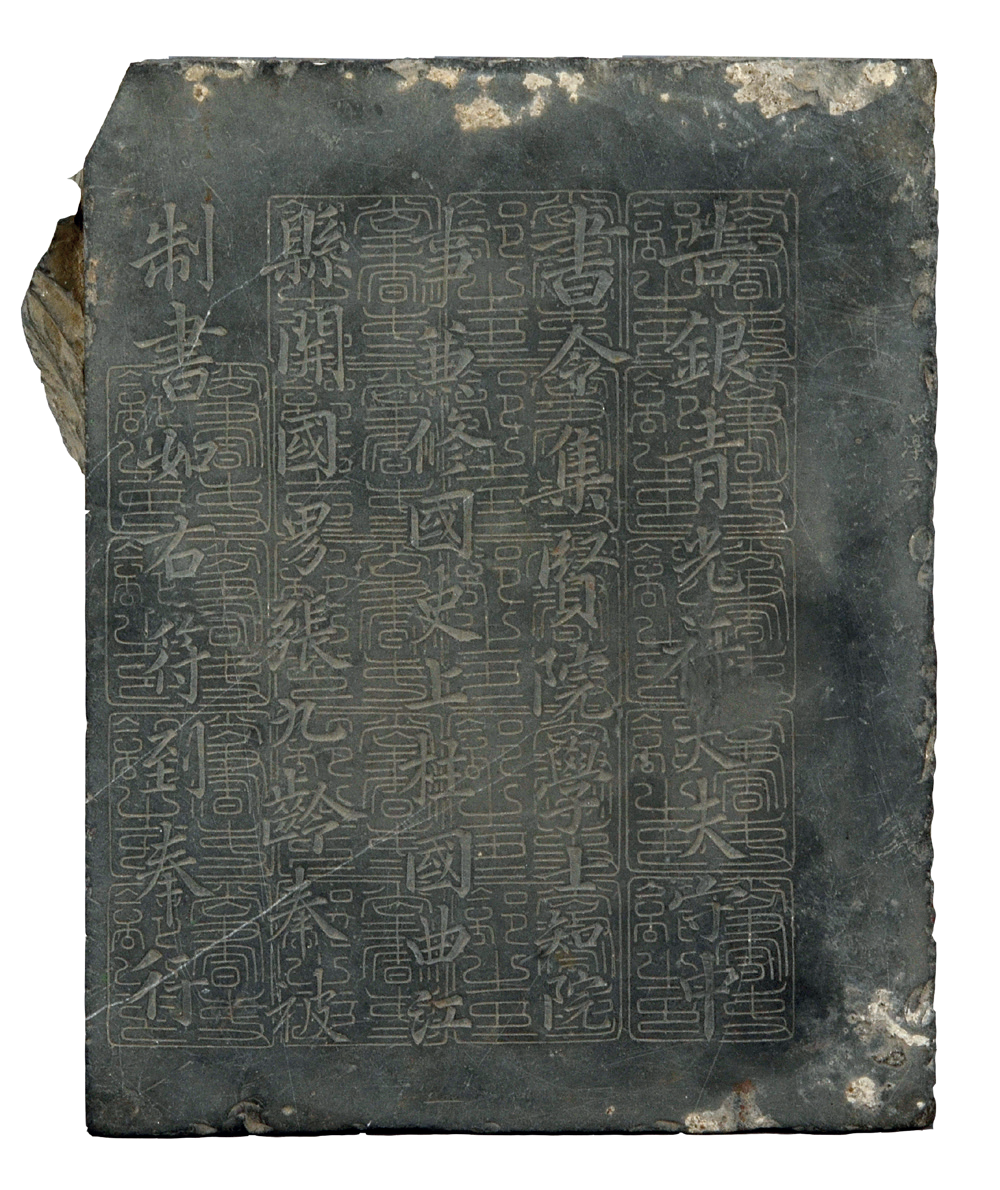 告銀青光祿大夫守中
書令集賢院學士知院
事兼修國史上柱國曲江
縣開國男張九齡奉被
制書如右符到奉行